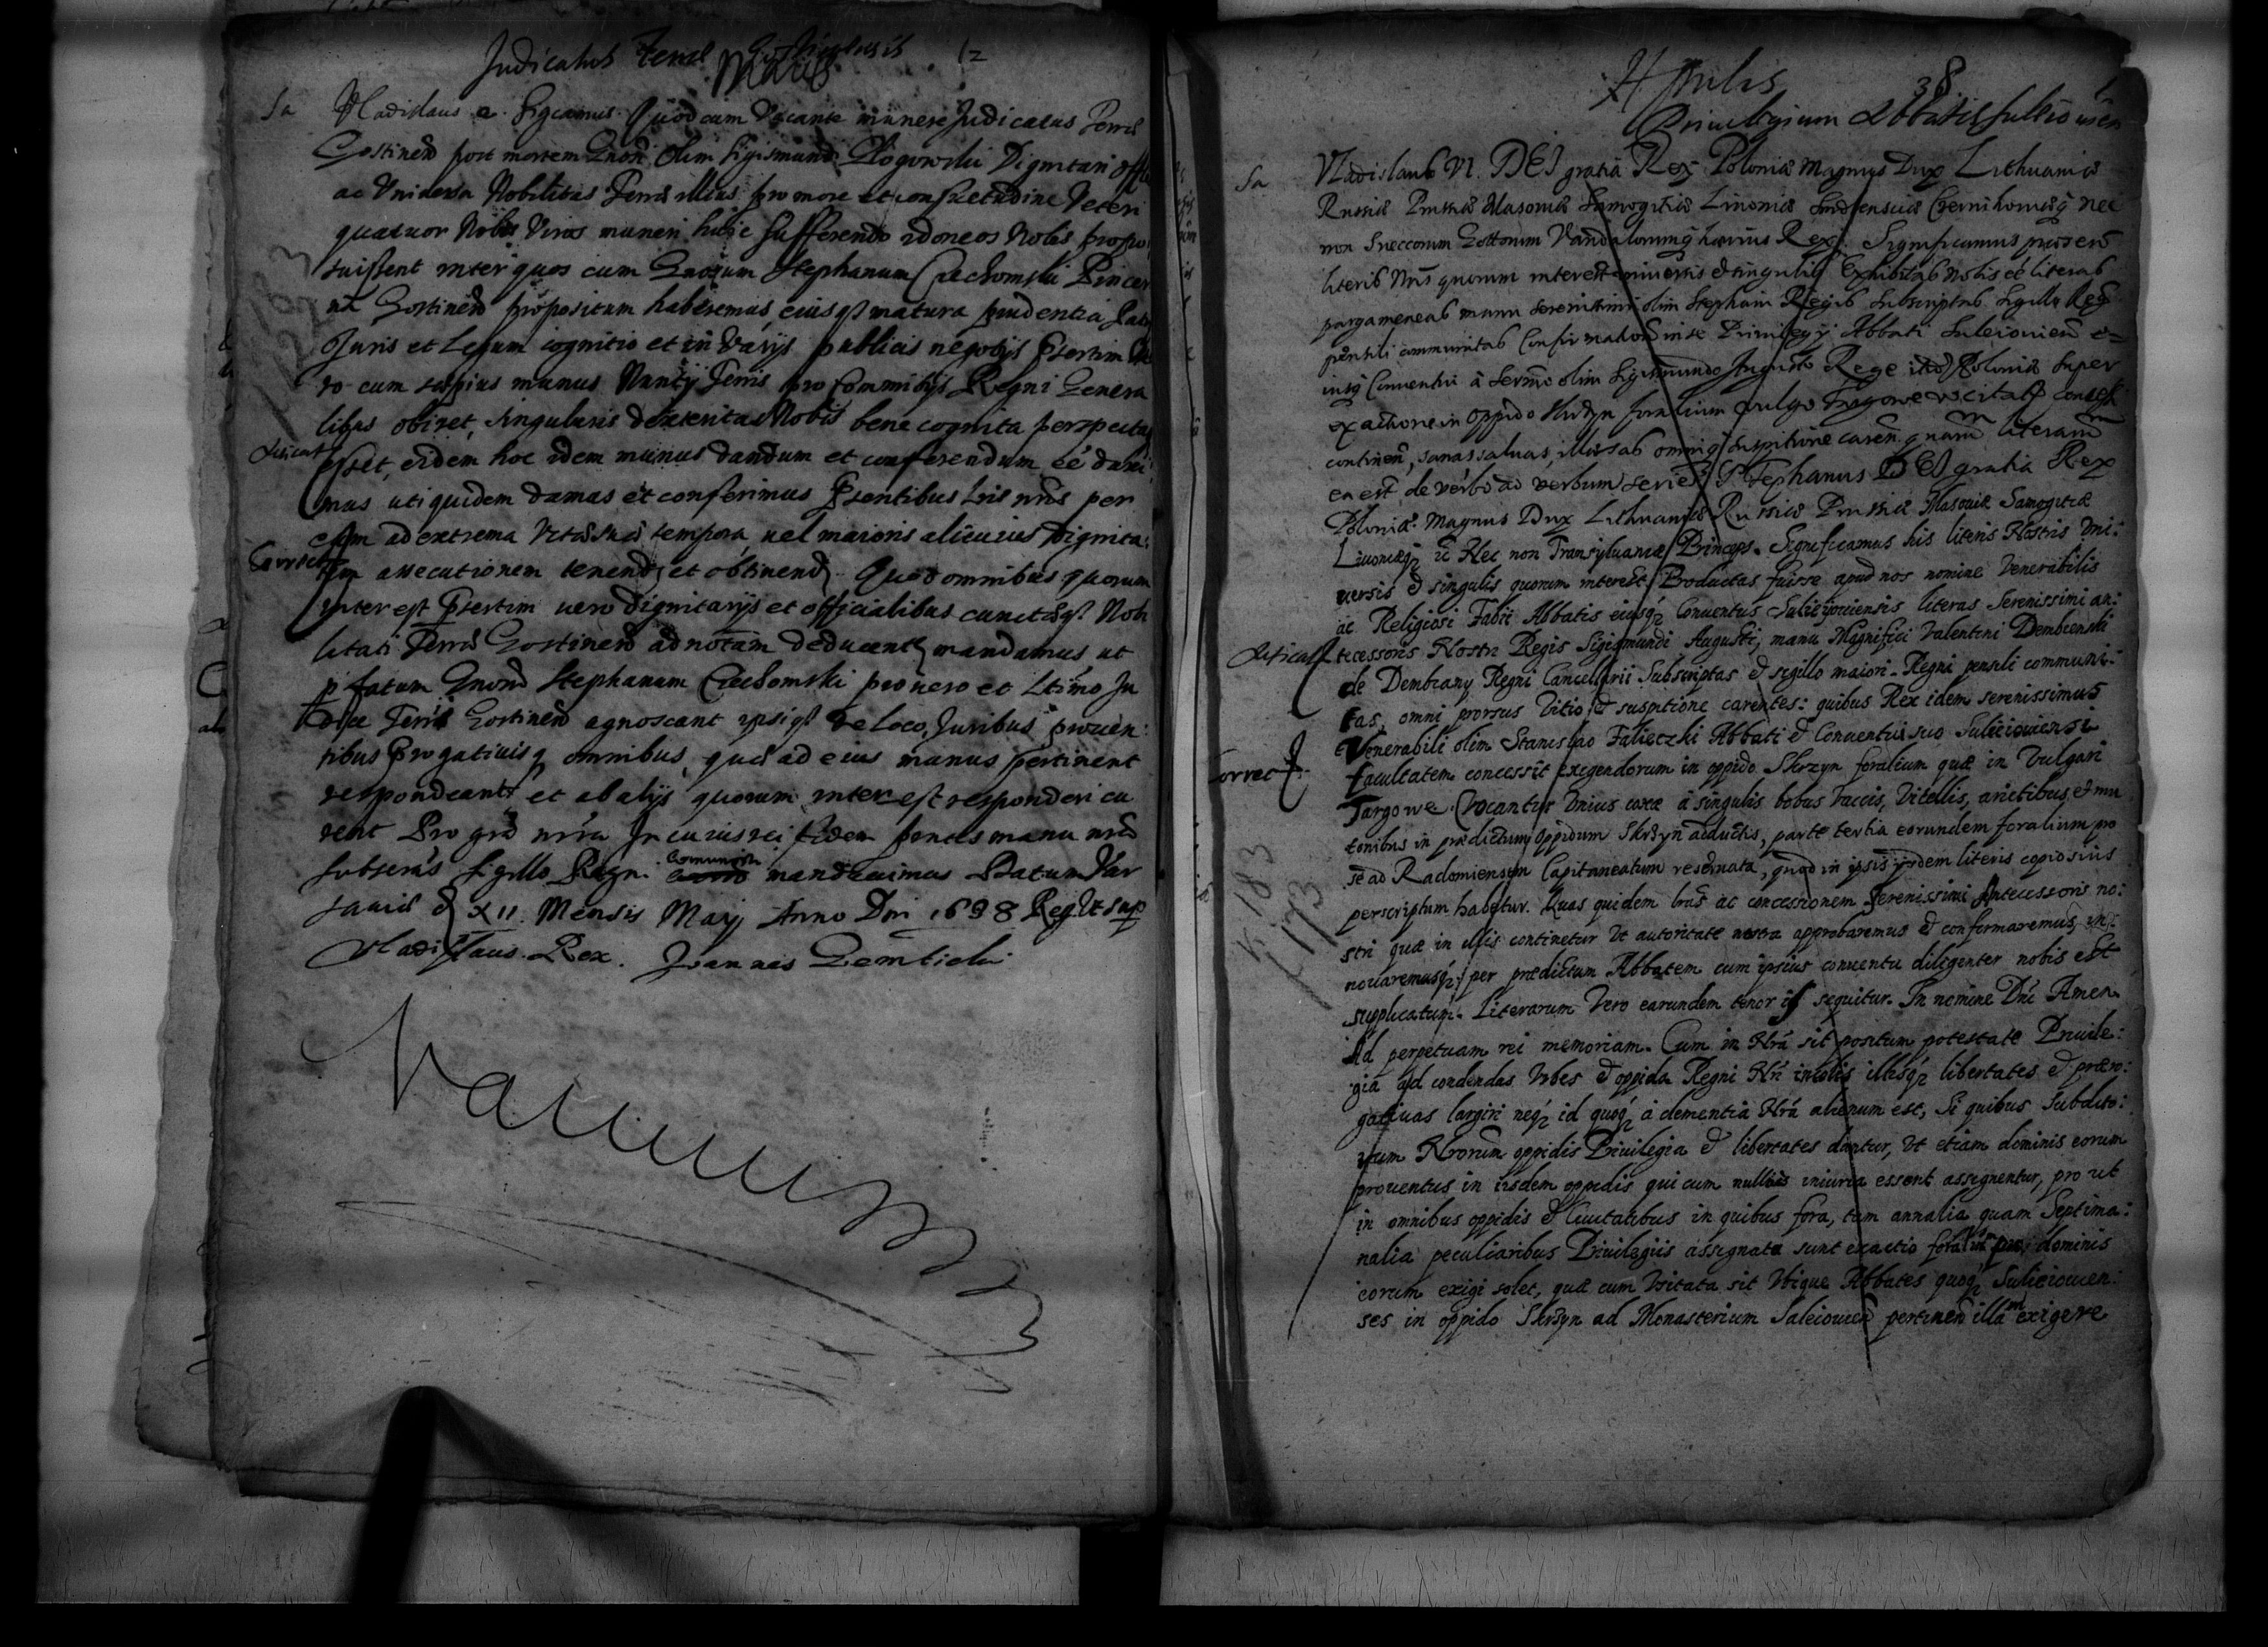 Judicatus Terræ Gostinensis 12
Maius
Sa Vladislaus 2. Significamus. Quod cum vacante munere Judicatus Terrę
Gostinen̄ post mortem Gnōsi olim Sigismundi Dignitarij Offici
ac Vniversa Nobilitas Terræ illius pro more et consuetudine Veteri
quatuor Nobiles Viros muneri huic sufferendo idoneos Nobis propo
suissent inter quos cum Gnōsum Stephanum Czechomski Pincer
nā Gostinen̄ propositum haberemus, eiusq₃ matura prudentia
Juris et Legum cognitio et in varijs publicis negotijs
to cum sæpius munus Nuntÿ Terris pro Commitijs Regni Genera
libus obiret, singularis dexteritas Nobis bene cognita perspecta
esset, eidem hoc idem munus dandum et conferendum eē duxi:
mus uti quidem damus et conferimus pr̄sentibus Lr̄is nr̄is per
eum ad extrema vitæ suæ tempora, vel maioris alicuius Dignita:
tis assecutionem tenend, et obtinend. Quod omnibus quorum
interest pr̄sertim vero dignitarijs et officialibus cunctæq₃ Nobi
litati Terræ Gostinen̄ ad notam deducentes, mandamus, ut
p̄fatum Gnōsum Stephanum Czechomski pro vero et Ltimo Ju
dice Terrę Gostinen̄ agnoscant ipsiq₃ de loco, Juribus proven:
tibus prærogativisq₃ omnibus, quæ ad eius munus pertinent
respondeant, et ab alijs quorum interest responderi cu
rent Pro grā nr̄a. In cuius rei fidem pr̄ntes manu nrā
subscrās Sigillo Regni Communiri mandavimus Datum Var
saviæ d XII. Mensis Maij Anno Dni 1638 Reg Vt sup
Vladislaus Rex. Joannes Gembicki
38
Priuilegium Abbatis Suleiouien
Sa Vladislaus VI. DEI gratiâ Rex Poloniæ Magnus Dux Lithuaniæ
Russiæ Prussiæ Masoviæ Samogitiæ Livoniæ Smolensciæ Czernihoviæq₃ nec
non Sueccorum Gottorum Vandalorumq₃ hærius Rex. Significamus præsen̄
literis Nr̄is quorum interest universis et singulis Exhibitas Nobis eē literas
pargameneas manu serenissimi olim Stephani Regis subscriptas Sigillo Regni
pensili communitas Confirmationē in se Priuilegij Abbati Suleiouien̄ e=
iusq₃ Conventui à Sermo olim Sigismundo Augusto Rege itid Poloniæ super
exactione in oppido Skrzyn foralium vulgo Targowe vocitat conces
continen, sanas saluas, illæsas omniq₃ suspitione caren. quarum literarum
ea est de verbo ad verbum series. Stephanus DEI gratia Rex
Poloniæ. Magnus Dux Lithuaniæ Russiæ Prussiæ Masoviæ Samogitiæ
Liuoniæq₃ &c Nec non Transyluaniæ Princeps. Significamus his literis Nostris Vni:
uersis & singulis quorum interest Productas fuisse apud nos nomine Venerabilis
ac Religiosi Fabii Abbatis eiusq₃ Conuentus Suleiouiensis literas Serenissimi an:
tecessoris Nostri Regis Sigismundi Augusti, manu Magnifici Valentini Dembienski
de Dembiany Regni Cancellarii Subscriptas & sigillo maiori Regni pensili communi:
tas, omni prorsus Vitio & suspitione carentes: quibus Rex idem serenissimus
Venerabili olim Stanislao Falieczki Abbati & Conuentui suo Suleiouiensi
facultatem concessit exigendorum in oppido Skrzyn foralium quæ in Vulgari
Targowe Vocantur Vnius à singulis bobus Vaccis, Vitellis, arietibus, & mu
tonibus in prædictum oppidum Skrzyn adductis, parte tertia eorundem foralium pro
se ad Radomiensem Capitaneatum reservata, quod in ipsis ijsdem literis copiosius
perscriptum habetur. Quas quidem lrās ac concessionem Serenissimi Antecessoris no:
stri quæ in illis continetur Vt autoritate nostra approbaremus & confirmaremus, in:
nouaremusq₃, per prædictum Abbatem cum ipsius conuentu diligenter nobis est
supplicatum. Literarum Vero earundem tenor is sequitur. In nomine Dnī Amen.
Ad perpetuam rei memoriam. Cum in Nrā sit positum potestate Priuile:
gia ad condendas Vrbes & oppida Regni Nrī incolis illisq₃ libertates & præro:
gatiuas largiri neq₃ id quoq₃ à clementia Nrā alienum est, Si quibus Subdito:
rum Nrorum oppidis Priuilegia & libertates dantur, Vt etiam dominis eorum
prouentus in iisdem oppidis qui cum nullius iniuria essent assignentur, pro ut
in omnibus oppidis & Ciuitatibus in quibus fora, tam annalia quam Septima:
nalia peculiaribus Priuilegiis assignata sunt exactio foralium pro dominis
eorum exigi solet, quæ cum Vsitata sit Vbique Abbates quoq₃ Suleiouien:
ses in oppido Skrzyn ad Monasterium Suleiouien̄ pertinen̄ illam exigere